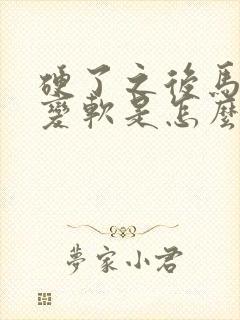 硬了之後馬
變軟是怎麼
夢家小君